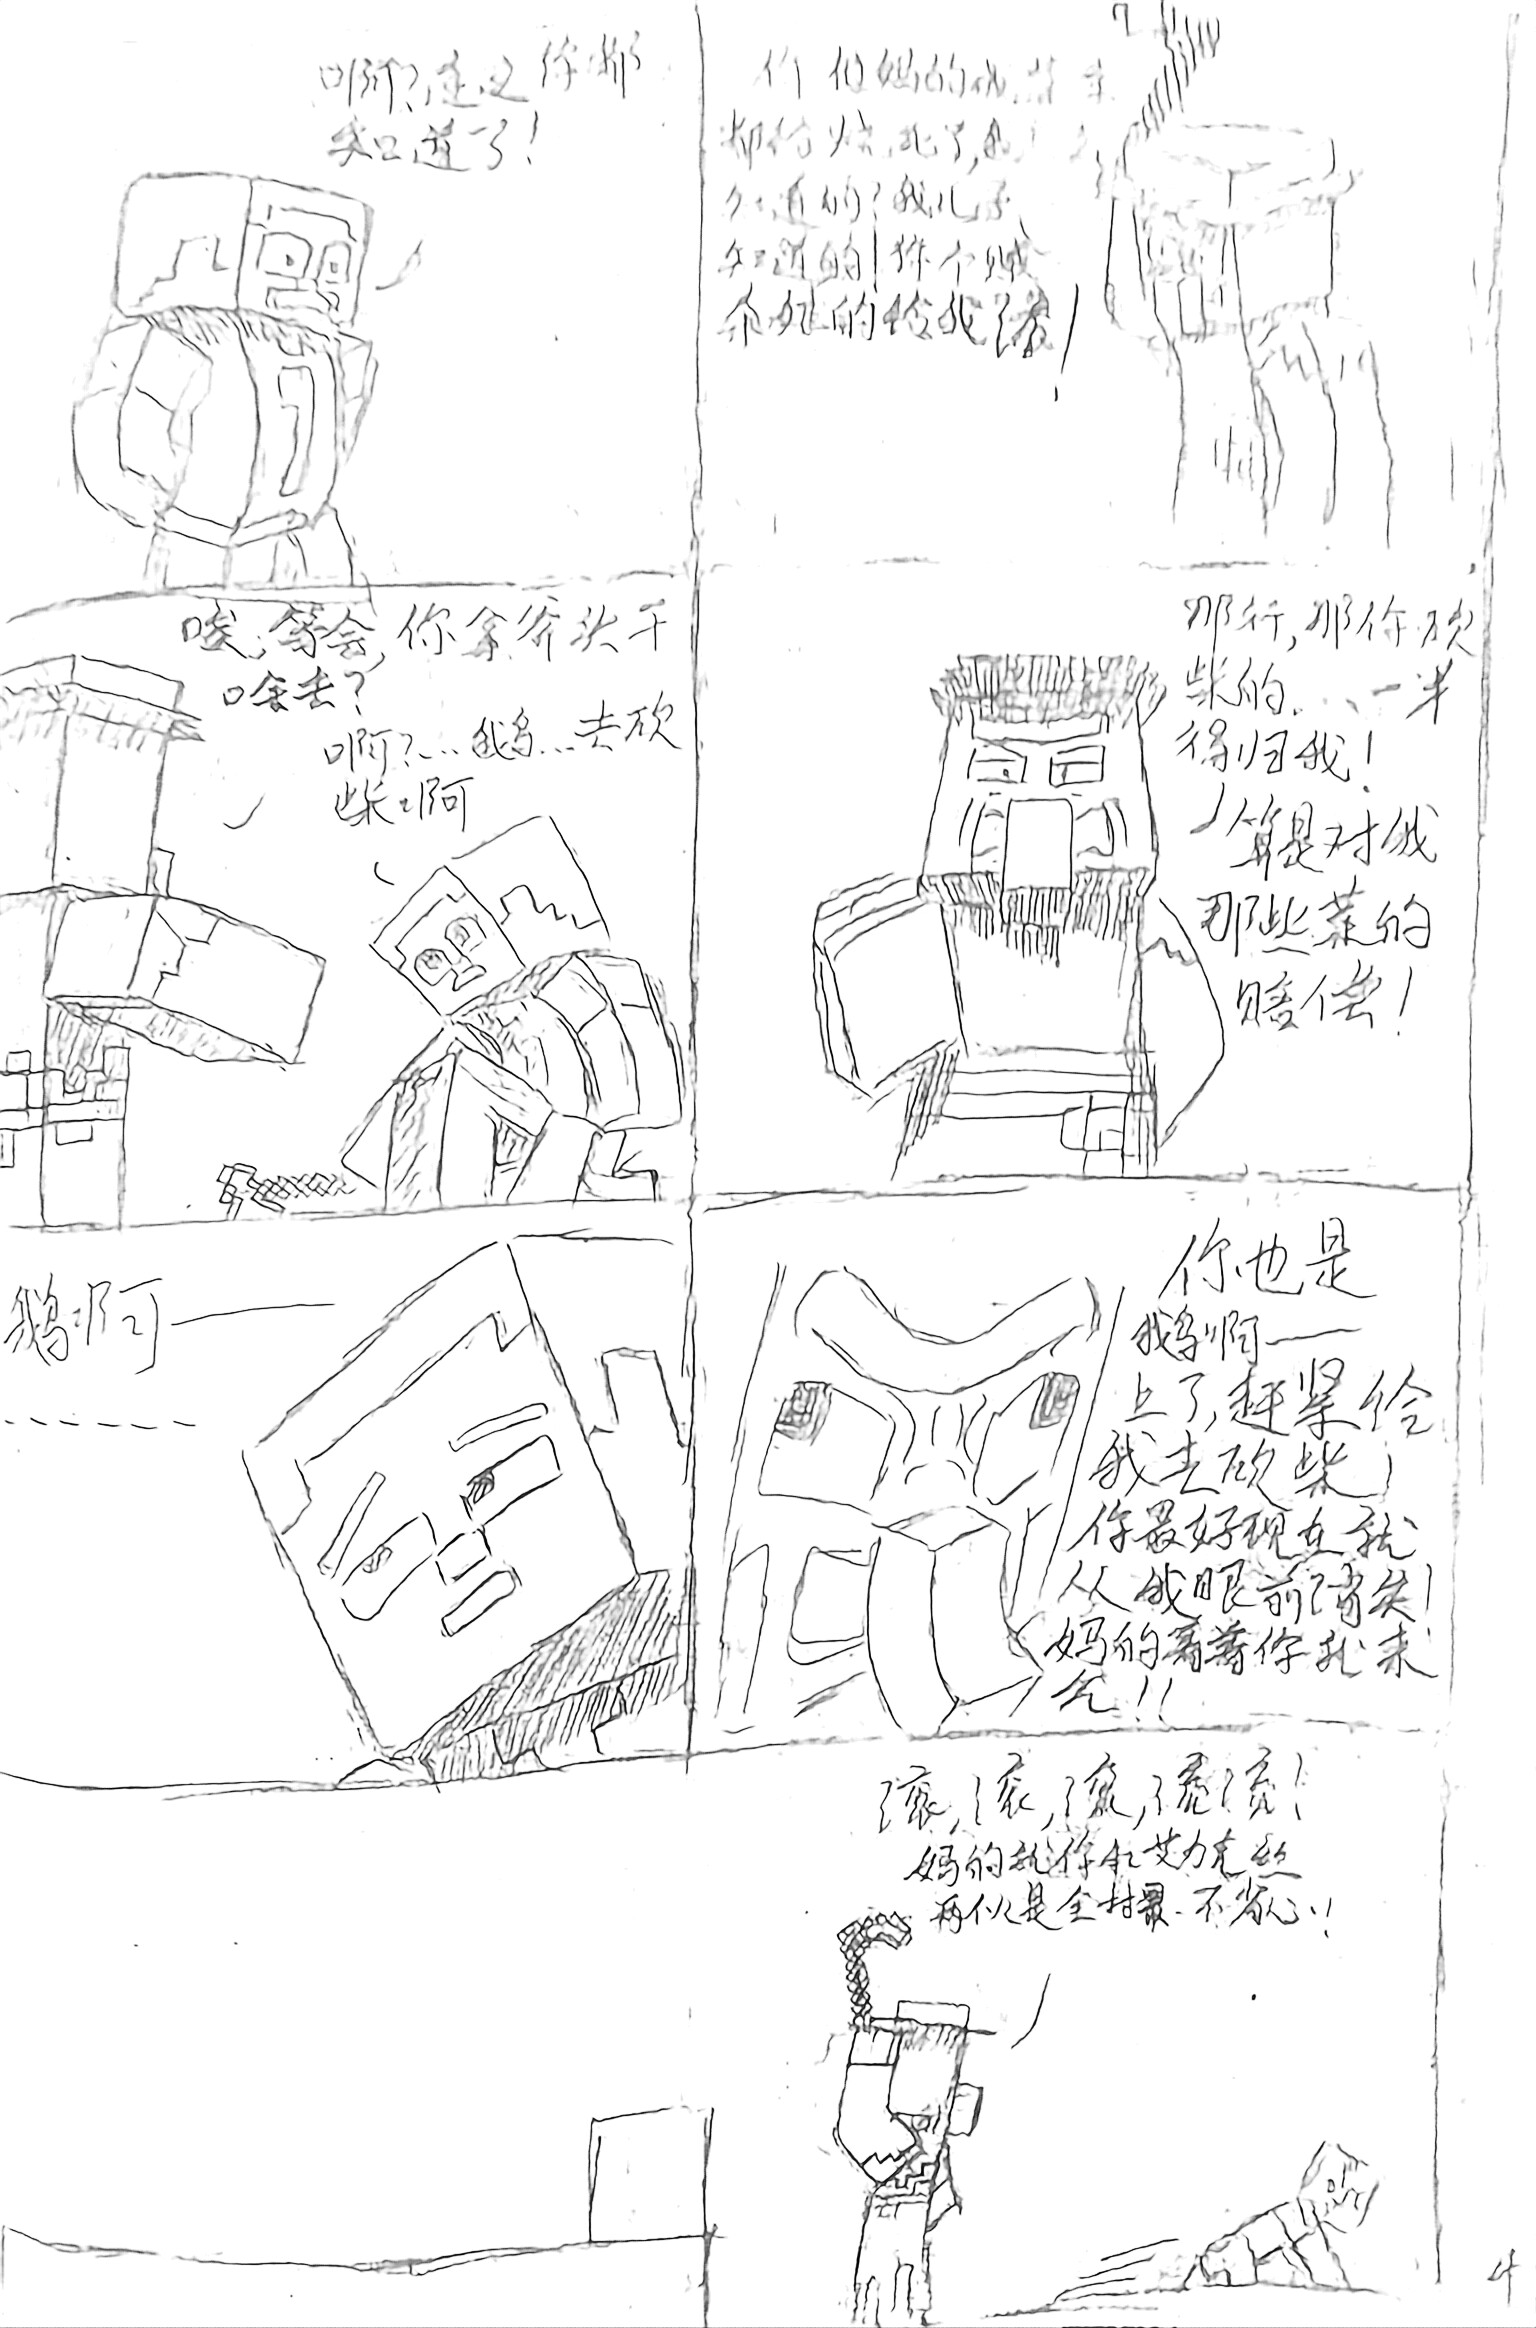 啊?连这你都
知道了!
你他妈的
都给烧死了,
知道的?我儿子
知道的!
给我滚!
唉,等会,你拿斧头干
啥去?
啊?...鹅...去砍
柴啊
那行,那你砍
柴的...一半
得归我!
算是对我
那些菜的
赔偿!
鹅啊——
------
你也是
鹅啊——
上了,赶紧给
我去砍柴!
你最好现在就
从我眼前消失!
妈的看着你就来
气!!
滚,滚,滚,滚滚!
妈的就你和艾力克丝
两个是全村最不省心!
4